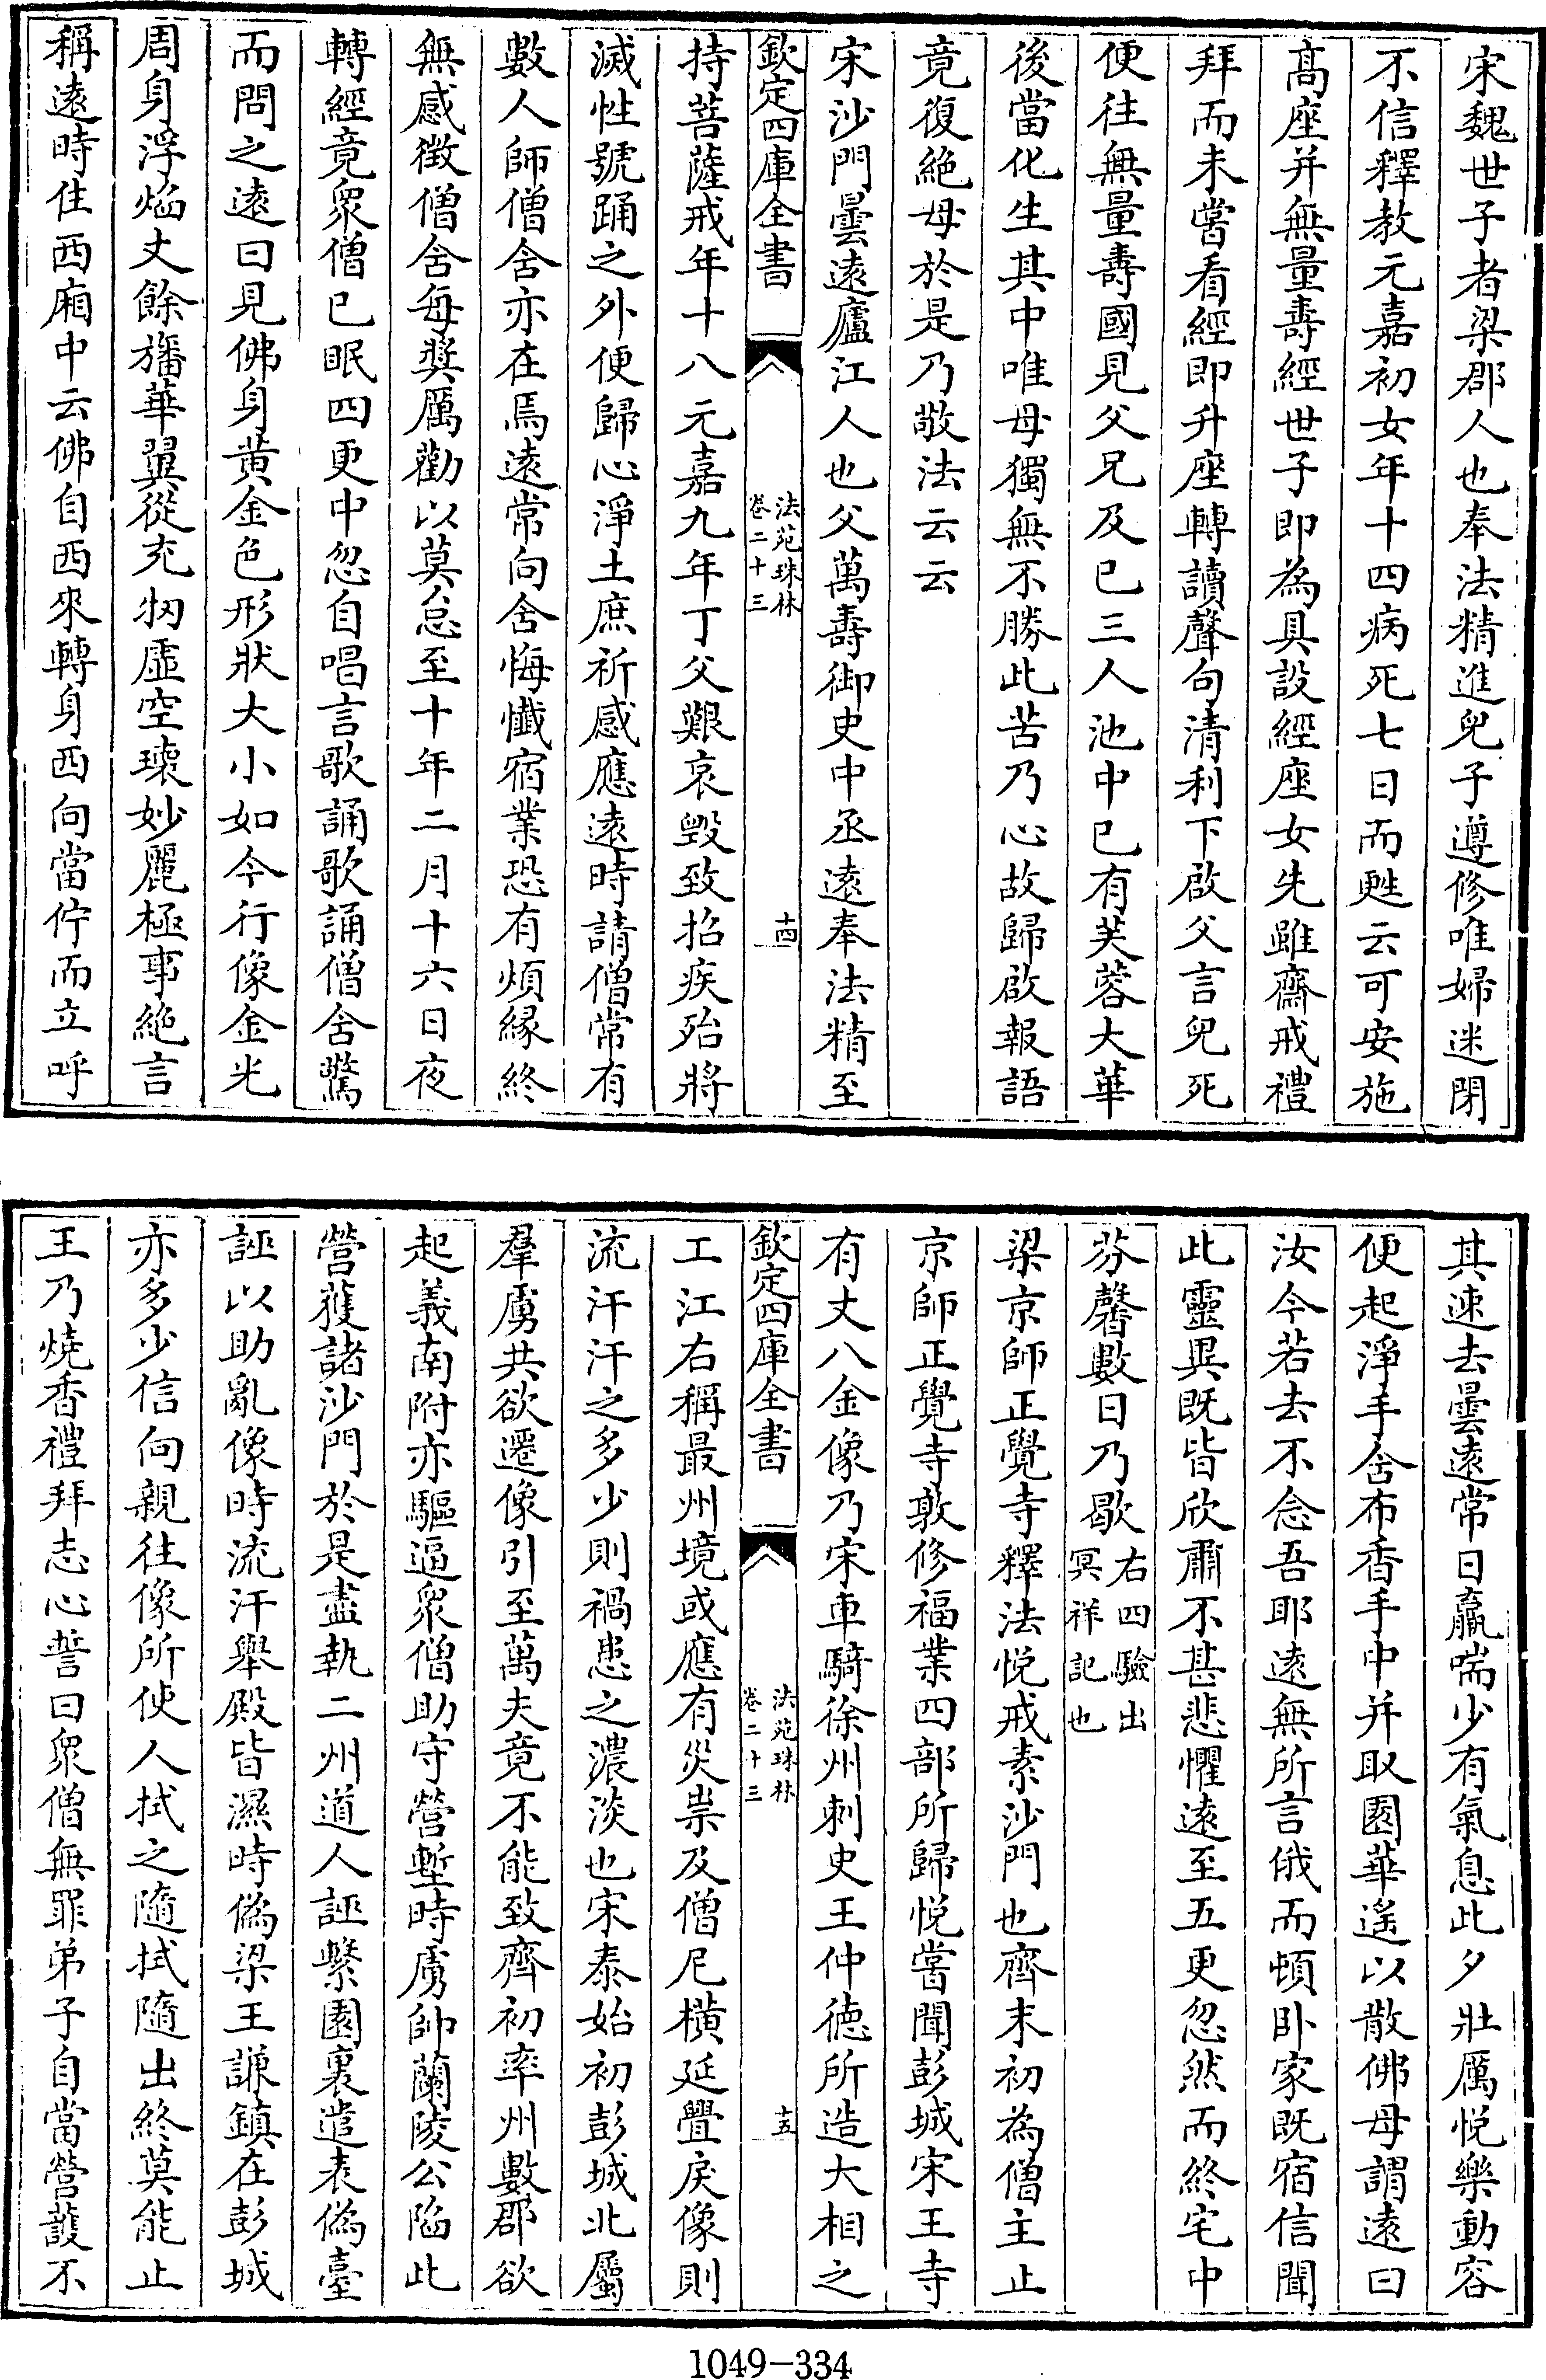 宋魏世子者梁郡人也奉法精進兒子遵修唯婦迷閉
不信釋教元嘉初女年十四病死七日而甦云可安施
高座并無量壽經世子即為具設經座女先雖齋戒禮
拜而未嘗看經即升座轉讀聲句清利下啟父言兒死
便往無量壽國見父兄及已三人池中已有芙蓉大華
後當化生其中唯母獨無不勝此苦乃心故歸啟報語
竟復絶母於是乃敬法云云
宋沙門曇遠廬江人也父萬壽御史中丞遠奉法精至
欽定四庫全書
法苑珠林
卷二十三
十四
持菩薩戒年十八元嘉九年丁父艱哀毀致招疾殆將
滅性號踊之外便歸心淨土庶祈感應遠時請僧常有
數人師僧舍亦在焉遠常向舍悔懺宿業恐有煩緣終
無感徵僧舍每獎厲勸以莫怠至十年二月十六日夜
轉經竟衆僧已眠四更中忽自唱言歌誦歌誦僧舍驚
而問之遠曰見佛身黄金色形狀大小如今行像金光
周身浮焰丈餘旛華翼從充牣虛空瓌妙麗極事絶言
稱遠時住西廂中云佛自西來轉身西向當佇而立呼
其速去曇遠常日羸喘少有氣息此夕壯厲悅樂動容
便起淨手舍布香手中并取園華遙以散佛母謂遠曰
汝今若去不念吾耶遠無所言俄而頓卧家既宿信聞
此靈異既皆欣肅不甚悲懼遠至五更忽然而終宅中
芬馨數日乃歇右四驗出
冥祥記也
梁京師正覺寺釋法悅戒素沙門也齊末初為僧主止
京師正覺寺敦修福業四部所歸悅嘗聞彭城宋王寺
有丈八金像乃宋車騎徐州刺史王仲德所造大相之
欽定四庫全書
法苑珠林
卷二十三
十五
工江右稱最州境或應有災祟及僧尼橫延舋戾像則
流汗汗之多少則禍患之濃淡也宋泰始初彭城北屬
羣虜共欲遷像引至萬夫竟不能致齊初率州數郡欲
起義南附亦驅逼衆僧助守營塹時虜帥蘭陵公陷此
營獲諸沙門於是盡執二州道人誣繫園裏遣表偽臺
誣以助亂像時流汗舉殿皆濕時偽梁王謙鎮在彭城
亦多少信向親往像所使人拭之隨拭隨出終莫能止
王乃燒香禮拜志心誓曰衆僧無罪弟子自當營護不
1049-334